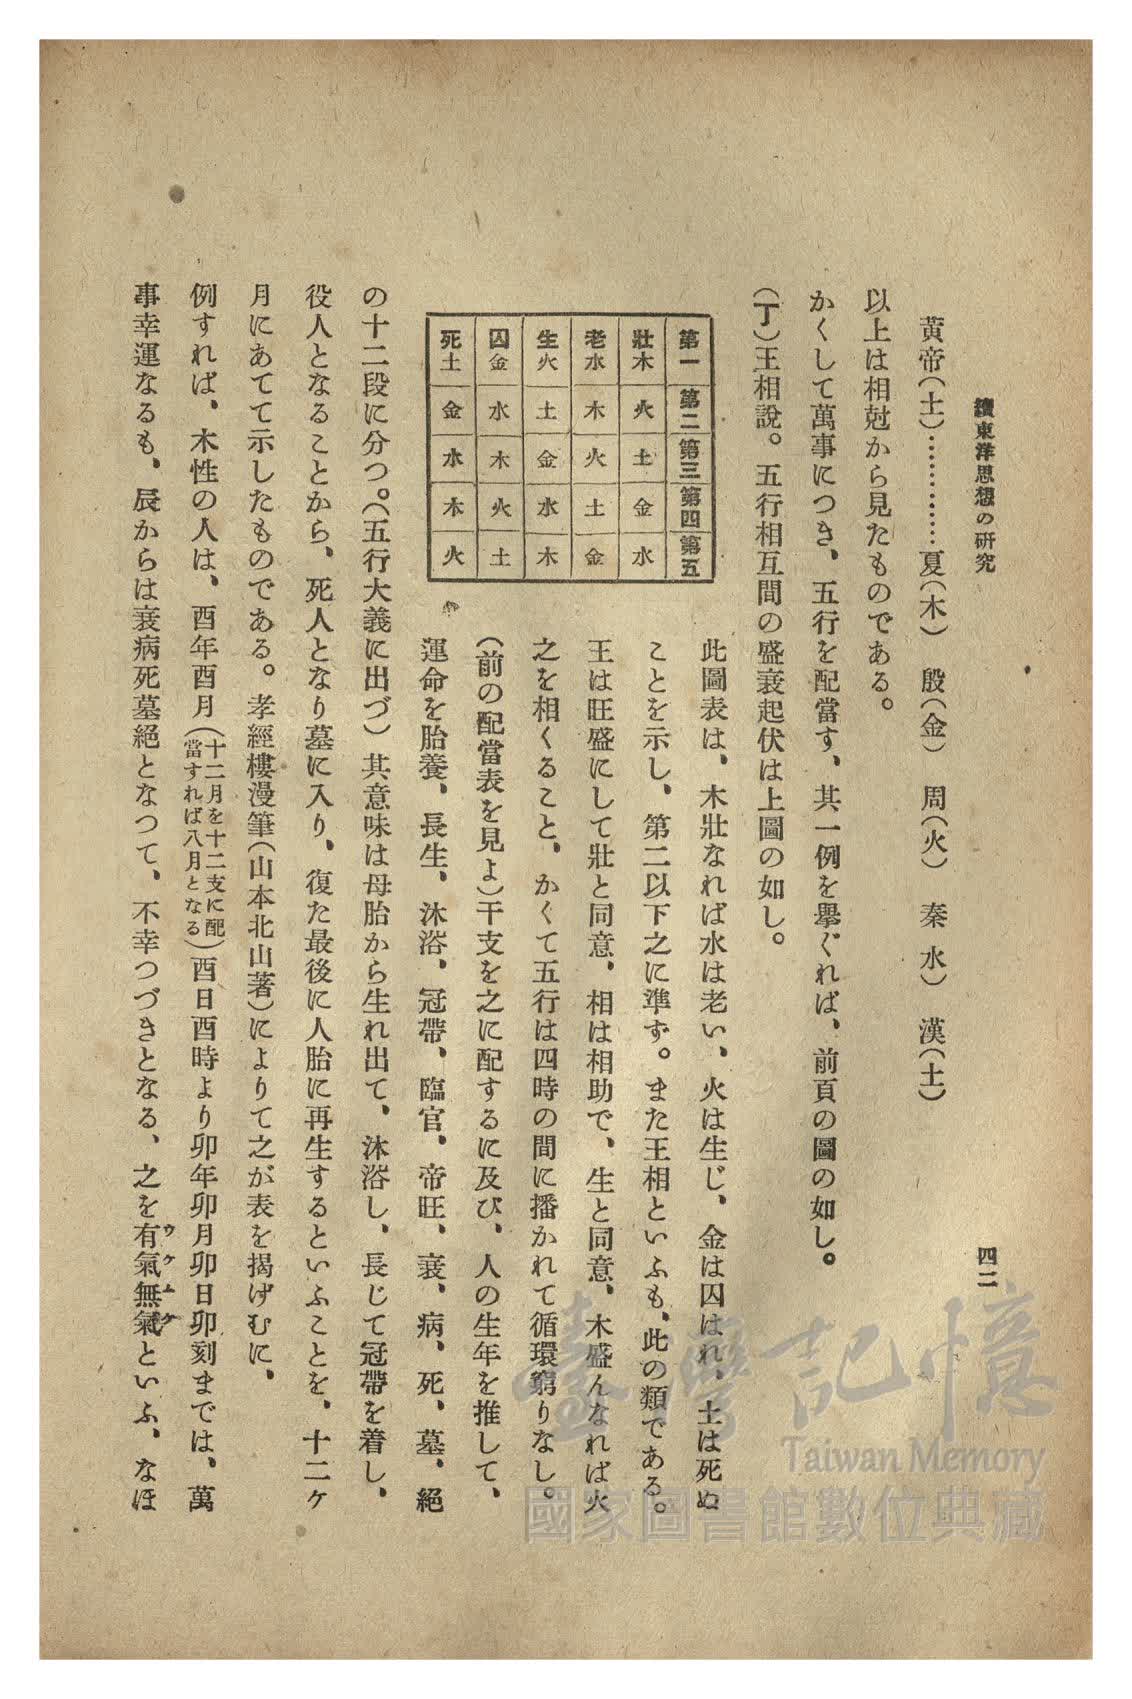 續東洋思想の研究
四二
黃帝(土)…………夏(木)　殷(金)　周(火)　秦　水)　漢(土)
以上は相尅から見たものである。
かくして萬事につき、五行を配當す、其一例を擧ぐれば、前頁の圖の如し。
(丁)王相說。五行相互間の盛衰起伏は上圖の如し。
第一　第二　第三　第四　第五
壯木　火　土　金　水
老水　木　火　土　金
生火　土　金　水　木
囚金　水　木　火　土
死土　金　水　木　火
此圖表は、木壯なれば水は老い、火は生じ、金は囚はれ、土は死ぬ
ことを示し、第二以下之に準ず。また王相といふも、此の類である。
王は旺盛にして壯と同意、相は相助で、生と同意、木盛んなれば火
之を相くること、かくて五行は四時の間に播かれて循環窮りなし。
(前の配當表を見よ)干支を之に配するに及び、人の生年を推して、
運命を胎養、長生、沐浴、冠帶、臨官、帝旺、衰、病、死、墓、絕
の十二段に分つ。(五行大義に出づ)其意味は母胎から生れ出て、沐浴し、長じて冠帶を着し、
役人となることから、死人となり墓に入り、復た最後に人胎に再生するといふことを、十二ヶ
月にあてて示したものである。孝經樓漫筆(山本北山著)によりて之が表を揭げむに、
例すれば、木性の人は、酉年酉月(十二月を十二支に配當すれば八月となる)酉日酉時より卯年卯月卯日卯刻までは、萬
事幸運なるも、辰からは衰病死墓絕となつて、不幸つづきとなる、之を有氣無氣といふ、なほ
ウケムケ
臺灣記憶
Taiwan Memory
國家圖書館數位典藏